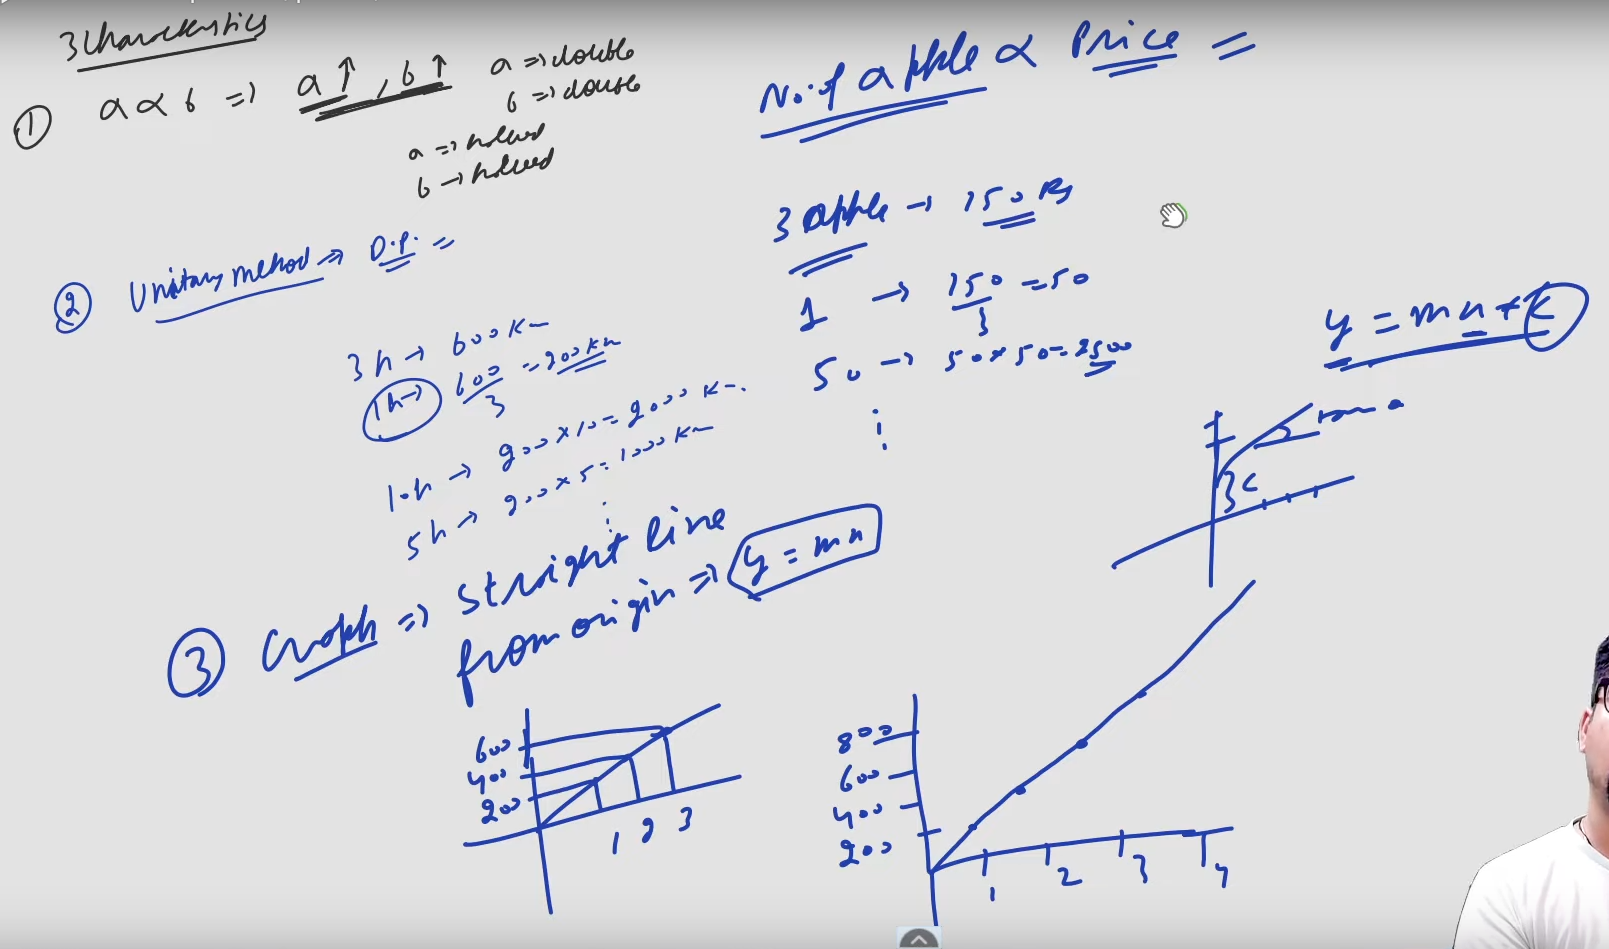 3 Characteristics
① a ∝ b ⇒ a↑, b↑
a ⇒ double
b ⇒ double
a ⇒ halved
b → halved
② Unitary method ⇒ D.P. =
3h → 600 Km
1h → 600/3 = 200 Km
10h → 200 × 10 = 2000 Km.
5h → 200 × 5 = 1000 Km
⋮
③ Graph ⇒ straight line
from origin ⇒ y = mx
600
400
200
1 2 3
No. of apple ∝ Price =
3 apple → 150 Rs
1 → 150/3 = 50
50 → 50 × 50 = 2500
⋮
y = mx + c
c
800
600
400
200
1 2 3 4